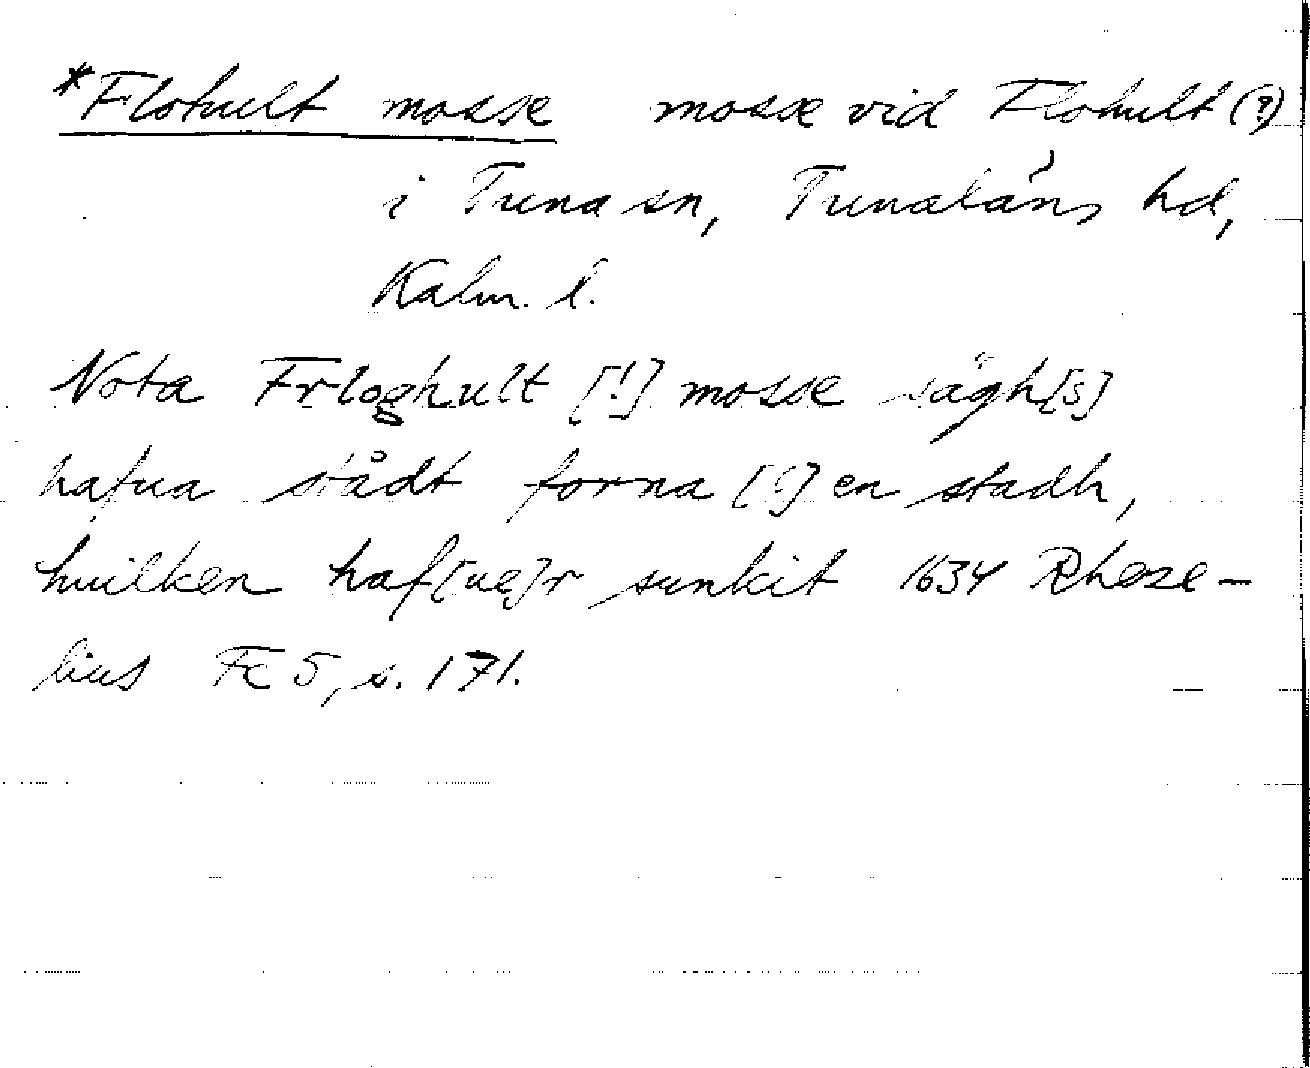 *Flohult mosse mosse vid Flohult (?)
i Tuna sn, Tunaläns hd,
Kalm. l.
Nota Frloghult [!] mosse sägh[s]
hafua städt forna [!] en stadh,
huilken haf[ue]r sunkit 1634 Rheze-
lius Fc 5, s. 171.